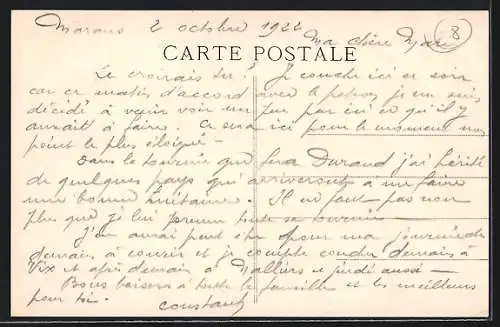 Marans 2 octobre 1922
8
Ma chère Marie
CARTE POSTALE
Le croirais tu ! Je couche ici ce soir
car ce matin d'accord avec le patron je me suis
décidé à venir voir un peu par ici ce qu'il y
aurait à faire. Ce sera ici pour le moment mon
point le plus éloigné -
Dans la tournée que fera Durand j'ai hérité
de quelques pays qui arriveront à me faire
une bonne huitaine. Il ne faut pas non
plus que je lui prenne toute sa tournée -
J'en aurai peut être pour ma journée de
demain à courir et je compte coucher demain à
Vix et après demain à Nalliers et jeudi aussi -
Bons baisers à toute la famille et les meilleurs
pour toi. Constant